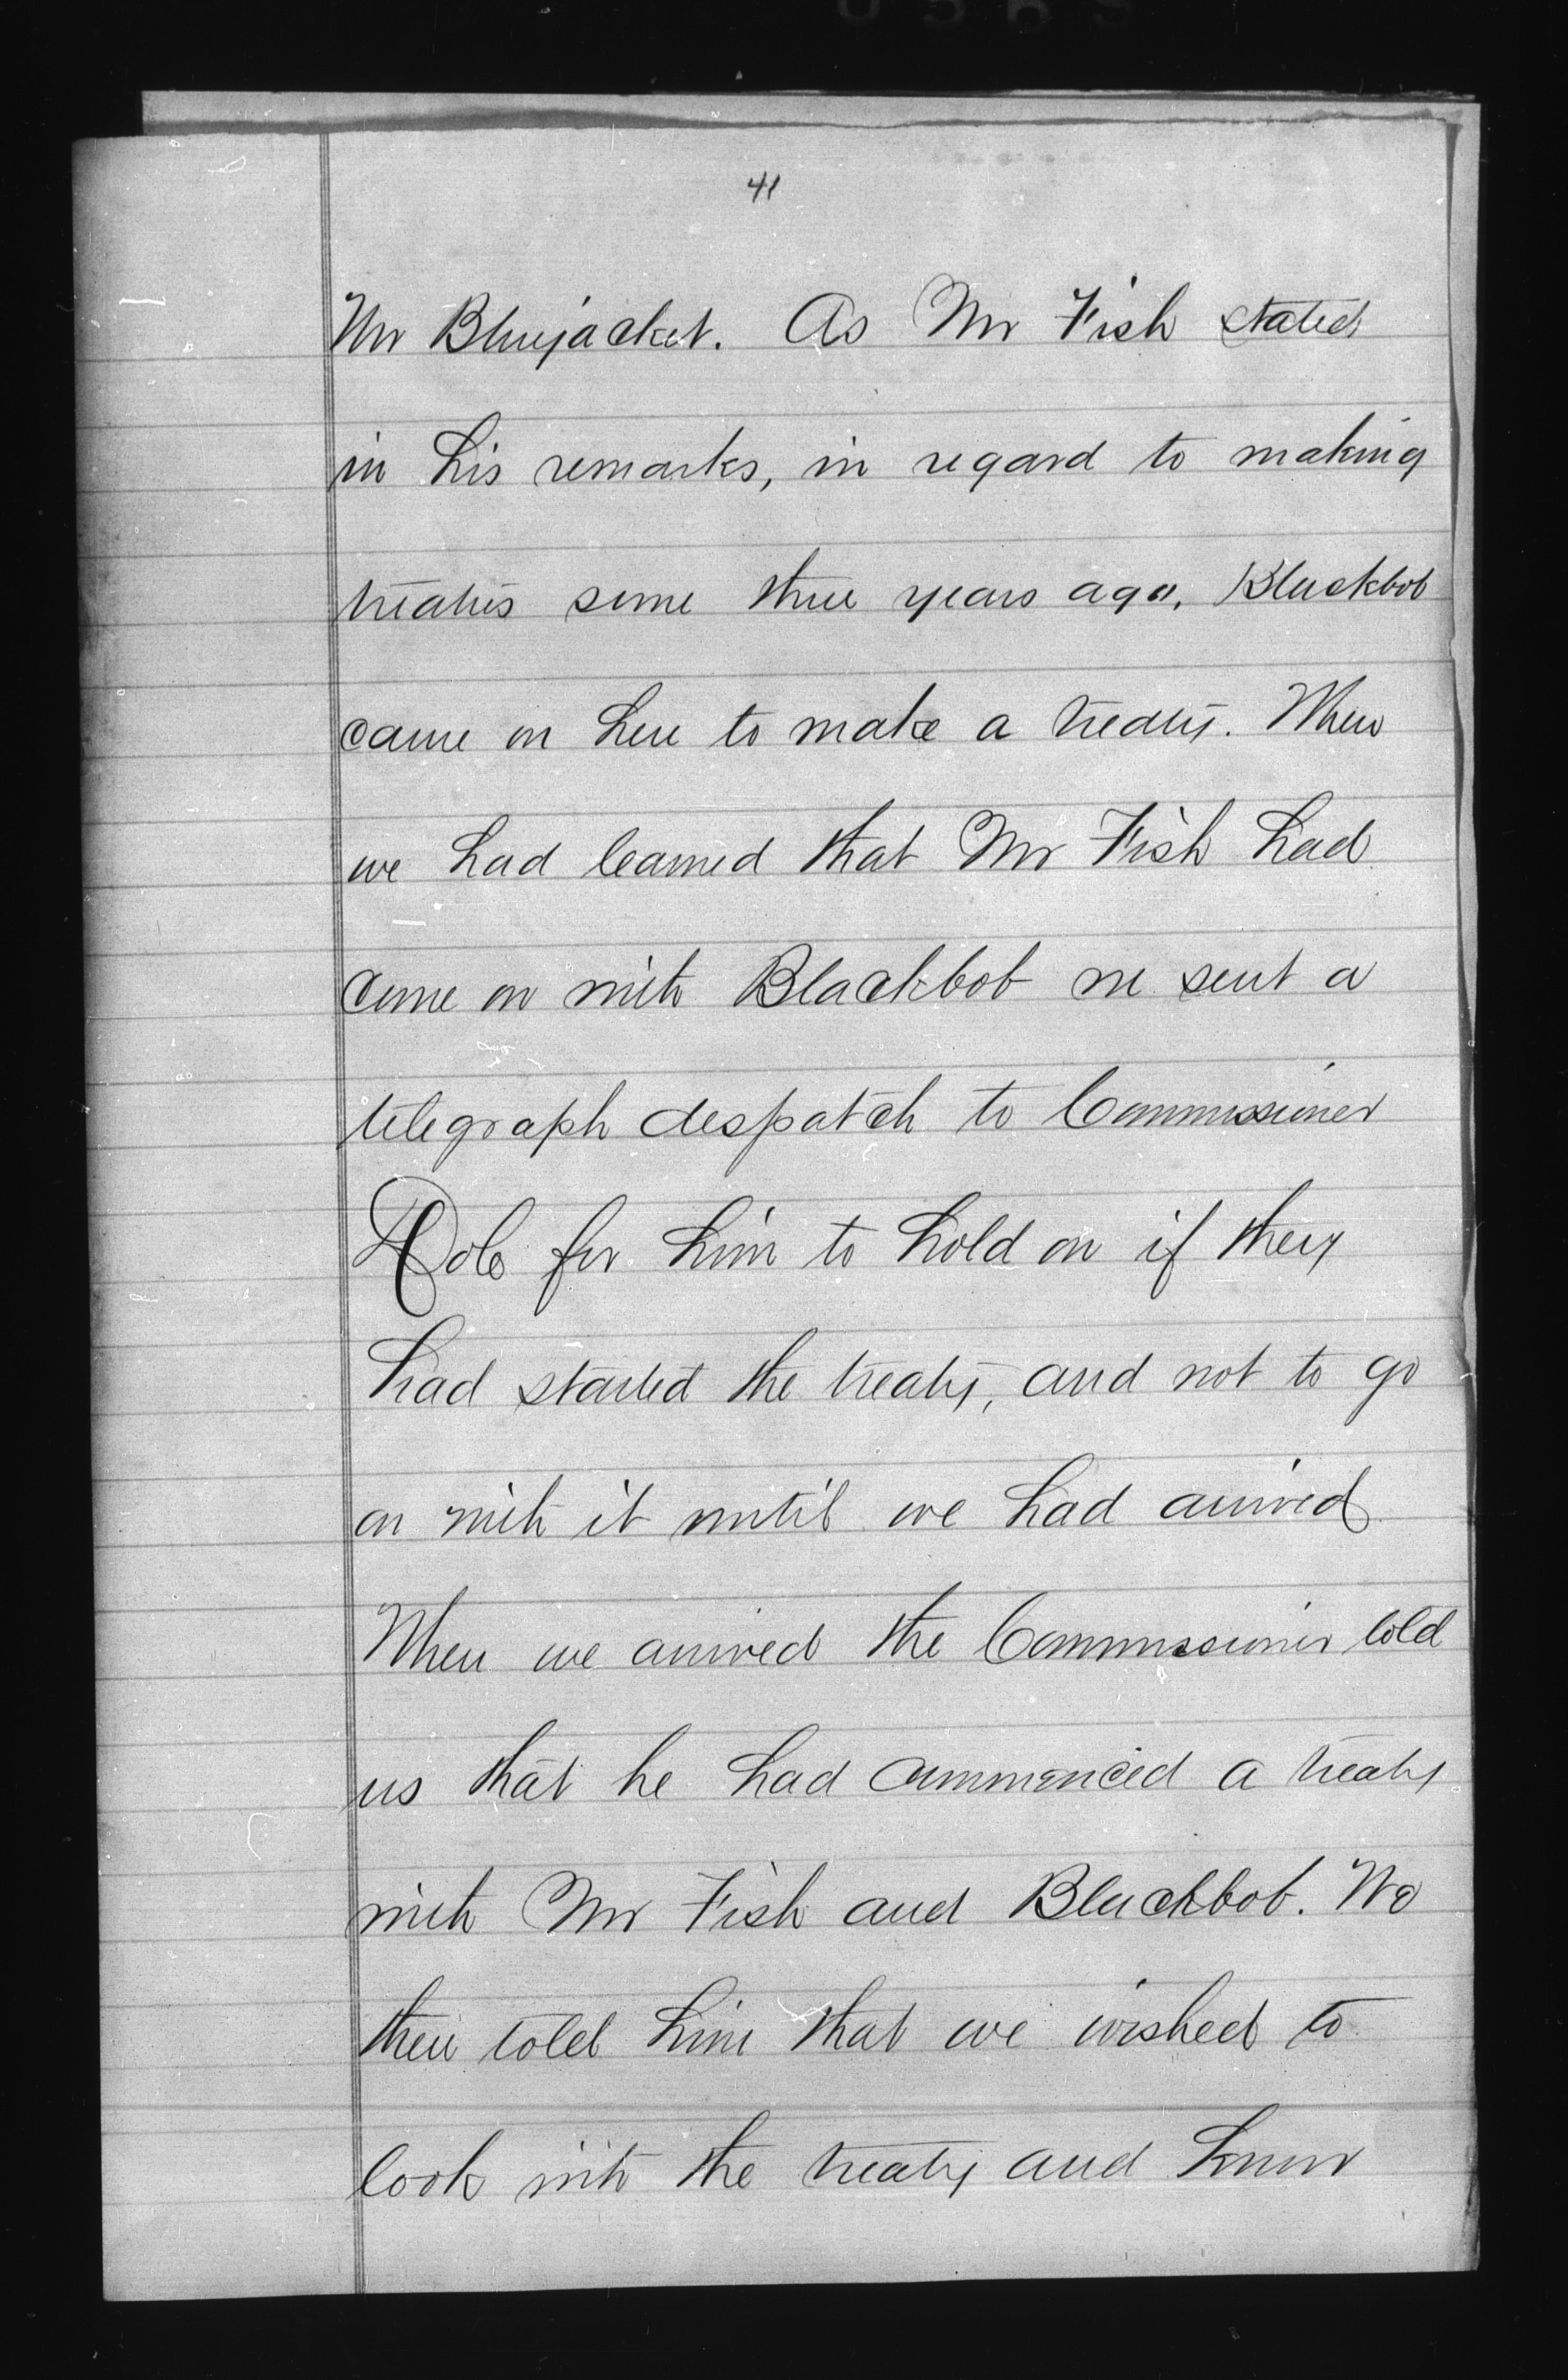 41
Mr Bluejacket. As Mr Fish stated
in his remarks, in regard to making
treaties some three years ago, Blackbob
came on here to make a treaty. When
we had learned that Mr Fish had
come on with Blackbob we sent a
telegraph despatch to Commissioner
Dole for him to hold on if they
had started the treaty, and not to go
on with it until we had arrived
When we arrived the Commissioner told
us that he had commenced a treaty
with Mr Fish and Blackbob. We
then told him that we wished to
look into the treaty and know